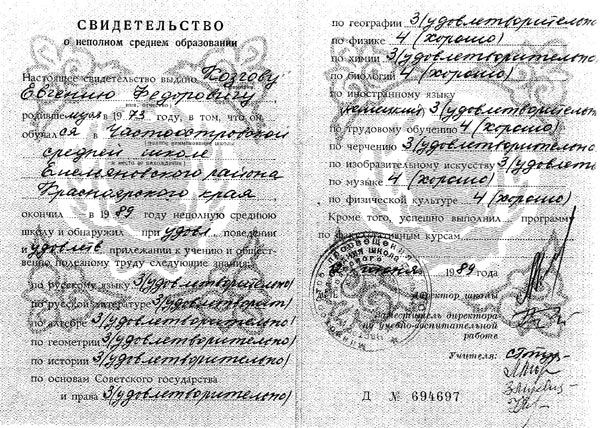 СВИДЕТЕЛЬСТВО
о неполном среднем образовании
Настоящее свидетельство выдано Козгову
Евгению Федоровичу
имя, отчество
родившемуся в 1973 году, в том, что он
обучался в Частоостровской
средней школе
и место ее нахождения
Емельяновского района
Красноярского края
окончил в 1989 году неполную среднюю
школу и обнаружил при удовл. поведении
и удовлетв прилежании к учению и общест-
венно, полезному труду следующие знания:
по русскому языку 3(удовлетворительно)
по русской литературе 3(удовлетворит)
по алгебре 3(удовлетворительно)
по геометрии 3(удовлетворительно)
по истории 3(удовлетворительно)
по основам Советского государства
и права 3(удовлетворительно)
по географии 3(удовлетворительно
по физике 4 (хорошо)
по химии 3(удовлетворительно
по биологии 4 (хорошо)
по иностранному языку
немецкий 3(удовлетворительно
по трудовому обучению 4 (хорошо)
по черчению 3(удовлетворительно
по изобразительному искусству 3(удовлет
по музыке 4 (хорошо)
по физической культуре 4 (хорошо)
Кроме того, успешно выполнил программу
по факультативным курсам
июня 1989 года
Директор школы
Заместитель директора
по учебно-воспитательной
работе
Учителя:
Д № 694697